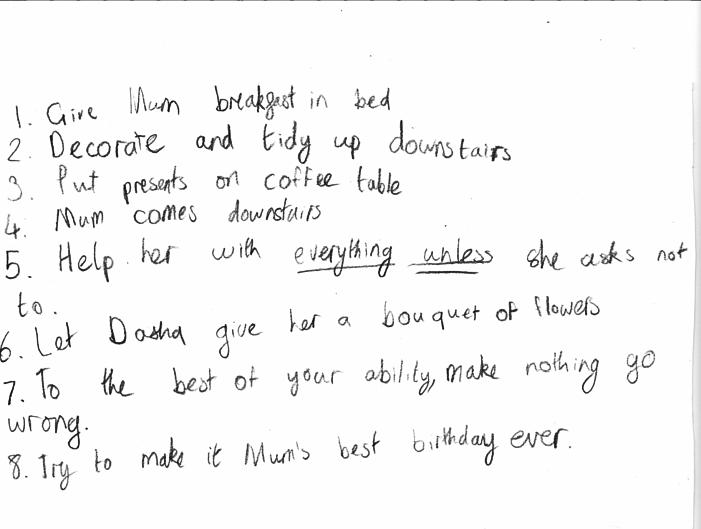 1. Give Mum breakfast in bed
2. Decorate and tidy up downstairs
3. Put presents on coffee table
4. Mum comes downstairs
5. Help her with everything unless she asks not
to.
6. Let Dasha give her a bouquet of flowers
7. To the best of your ability, make nothing go
wrong.
8. Try to make it Mum's best birthday ever.